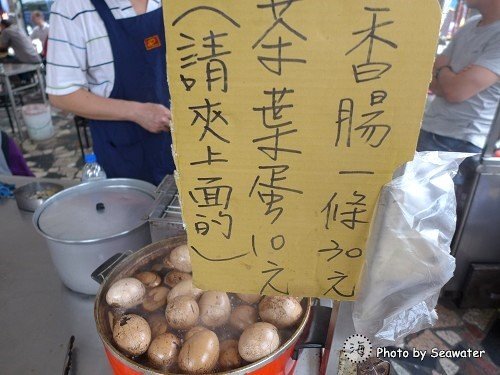 香腸一條30元
茶葉蛋10元
(請夾上面的)
海
Photo by Seawater